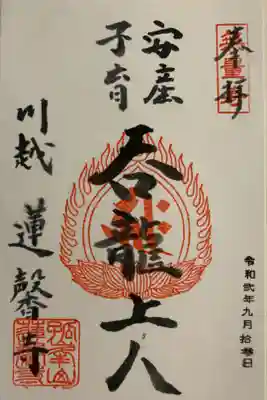 奉拝
令和弐年九月拾参日
安産
子育
呑龍上人
川越
蓮馨寺